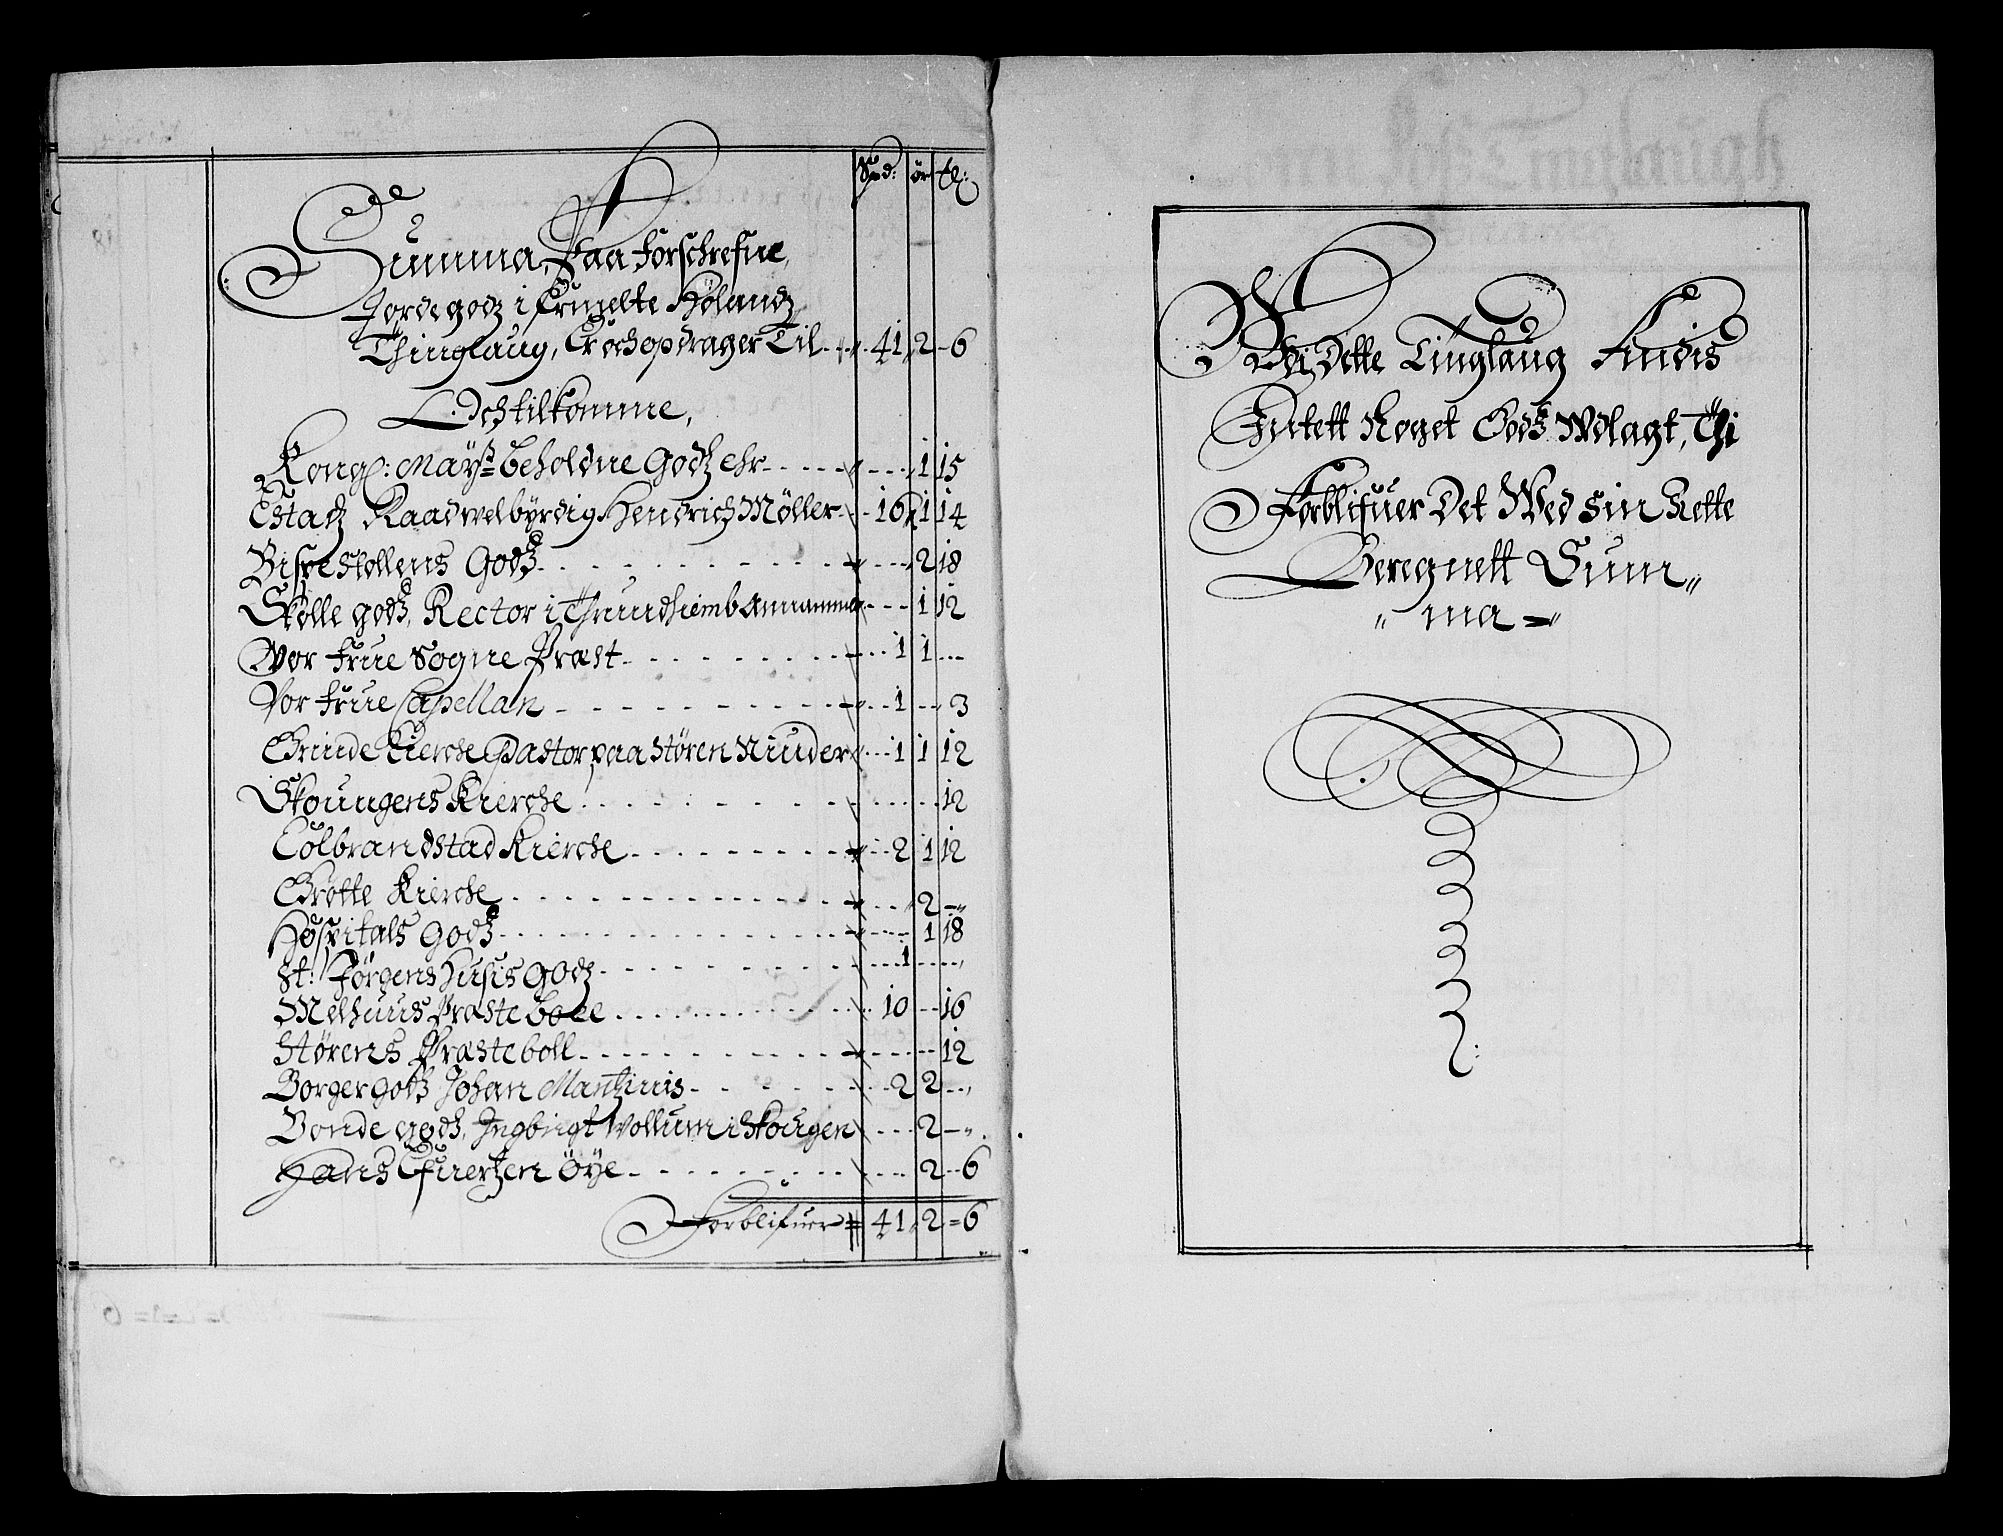 Spd: ör tl:
Summa, Paa forschrefne
Jordegodz i Ermelte Hølandz
Thinglaug, Er och opdrager Til - 41 2 - 6
Och tilkomme,
Kongl: Mayts beholdne Godz ehr - 1 15
Etatz Raad welbyrdig Hendrich Møller - 16 1 14
Bispestollens Godz - 2 18
Skolle godz, Rector i Thrundhiemb Annamme - 1 12
Wor frue Sogne Præst - 1 1
Vor frue Capellan - 1 - 3
Grinde Kierche Pastor paa Støren Niuder - 1 1 12
Skoungens Kierche - 12
Colbrandstad Kierche - 2 1 12
Grøtte Kierche - 2 -
Hospitals Godz - 1 18
St: Jørgens Husis Godz - 1
Melhuus Præste boll - 10 - 16
Størens Præsteboll - 12
Borger godz Johan Mantzinis - 2 2
Bonde godz, Ingbrigt Wollum i Skougen - 2 -
Hans Efuertzen Öye - 2 - 6
Forblifuer = 41 2 = 6
Wdi Dette Tinglaug Findis
Intett Noget Godz Wdlagt, Thi
Forblifuer Det Wed sin Rette
Beregnett Sum„
„ ma =„